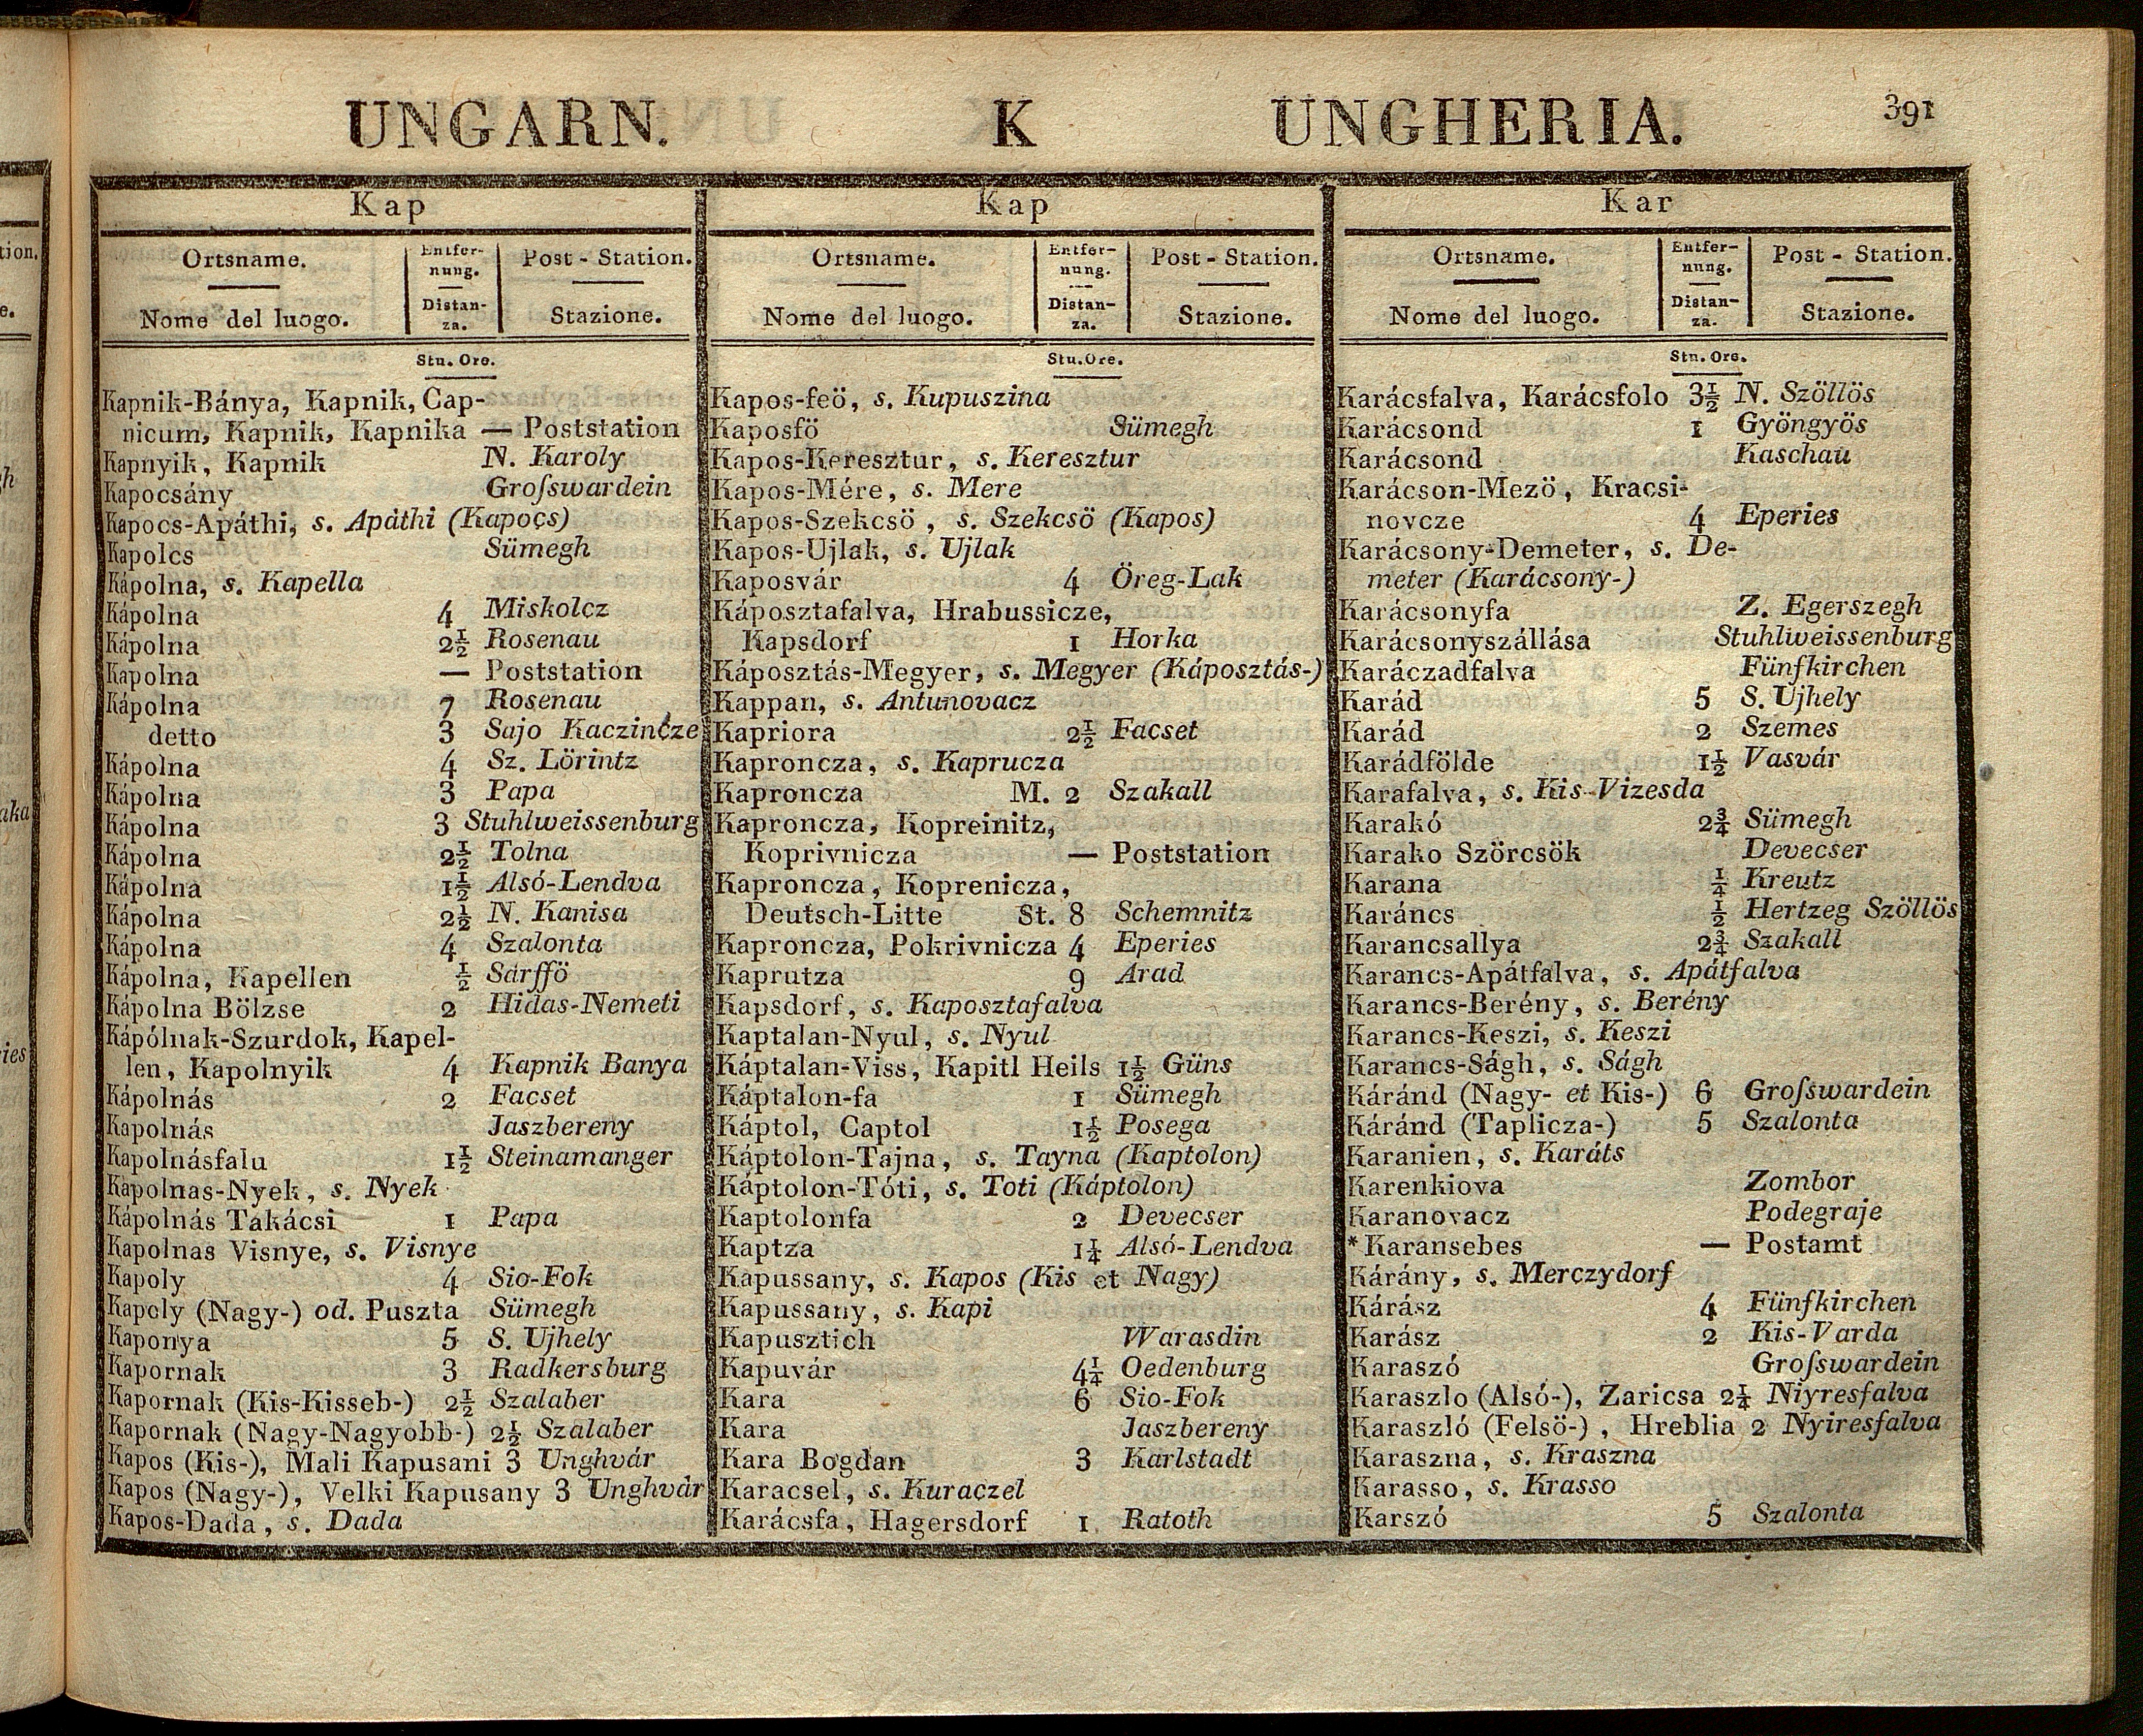 UNGARN. K UNGHERIA. 391
Kap
Ortsname. Entfer- Post - Station.
nung.
Nome del luogo. Distan- Stazione.
za.
Stu. Ore.
Kapnik-Bánya, Kapnik, Cap-
nicum, Kapnik, Kapnika — Poststation
Kapnyik, Kapnik N. Karoly
Kapocsány Groſswardein
Kapocs-Apáthi, s. Apáthi (Kapocs)
Kapolcs Sümegh
Kápolna, s. Kapella
Kápolna 4 Miskolcz
Kápolna 2½ Rosenau
Kapolna — Poststation
Kápolna 7 Rosenau
detto 3 Sajo Kaczincze
Kápolna 4 Sz. Lörintz
Kápolna 3 Papa
Kápolna 3 Stuhlweissenburg
Kápolna 2½ Tolna
Kápolna 1½ Alsó-Lendva
Kápolna 2½ N. Kanisa
Kápolna 4 Szalonta
Kápolna, Kapellen ½ Sárffö
Kápolna Bölzse 2 Hidas-Nemeti
Kápólnak-Szurdok, Kapel-
len, Kapolnyik 4 Kapnik Banya
Kápolnás 2 Facset
Kapolnás Jaszbereny
Kapolnásfalu 1½ Steinamanger
Kapolnas-Nyek, s. Nyek
Kápolnás Takácsi 1 Papa
Kapolnas Visnye, s. Visnye
Kapoly 4 Sio-Fok
Kapoly (Nagy-) od. Puszta Sümegh
Kaponya 5 S. Ujhely
Kapornak 3 Radkersburg
Kapornak (Kis-Kisseb-) 2½ Szalaber
Kapornak (Nagy-Nagyobb-) 2½ Szalaber
Kapos (Kis-), Mali Kapusani 3 Unghvár
Kapos (Nagy-), Velki Kapusany 3 Unghvár
Kapos-Dada, s. Dada
Kap
Ortsname. Entfer- Post - Station.
nung.
Nome del luogo. Distan- Stazione.
za.
Stu. Ore.
Kapos-feö, s. Kupuszina
Kaposfö Sümegh
Kapos-Keresztur, s. Keresztur
Kapos-Mére, s. Mere
Kapos-Szekcsö, s. Szekcsö (Kapos)
Kapos-Ujlak, s. Ujlak
Kaposvár 4 Öreg-Lak
Káposztafalva, Hrabussicze,
Kapsdorf 1 Horka
Káposztás-Megyer, s. Megyer (Káposztás-)
Kappan, s. Antunovacz
Kapriora 2½ Facset
Kaproncza, s. Kaprucza
Kaproncza M. 2 Szakall
Kaproncza, Kopreinitz,
Koprivnicza — Poststation
Kaproncza, Koprenicza,
Deutsch-Litte St. 8 Schemnitz
Kaproncza, Pokrivnicza 4 Eperies
Kaprutza 9 Arad
Kapsdorf, s. Kaposztafalva
Kaptalan-Nyul, s. Nyul
Káptalan-Viss, Kapitl Heils 1½ Güns
Káptalon-fa 1 Sümegh
Káptol, Captol 1½ Posega
Káptolon-Tajna, s. Tayna (Kaptolon)
Káptolon-Tóti, s. Toti (Káptolon)
Kaptolonfa 2 Devecser
Kaptza 1¼ Alsó-Lendva
Kapussany, s. Kapos (Kis et Nagy)
Kapussany, s. Kapi
Kapusztich Warasdin
Kapuvár 4¼ Oedenburg
Kara 6 Sio-Fok
Kara Jaszbereny
Kara Bogdan 3 Karlstadt
Karacsel, s. Kuraczel
Karácsfa, Hagersdorf 1 Ratoth
Kar
Ortsname. Entfer- Post - Station.
nung.
Nome del luogo. Distan- Stazione.
za.
Stn. Ore.
Karácsfalva, Karácsfolo 3½ N. Szöllös
Karácsond 1 Gyöngyös
Karácsond Kaschau
Karácson-Mezö, Kracsi-
novcze 4 Eperies
Karácsony-Demeter, s. De-
meter (Karácsony-)
Karácsonyfa Z. Egerszegh
Karácsonyszállása Stuhlweissenburg
Karáczadfalva Fünfkirchen
Karád 5 S. Ujhely
Karád 2 Szemes
Karádfölde 1½ Vasvár
Karafalva, s. Kis-Vizesda
Karakó 2¾ Sümegh
Karako Szörcsök Devecser
Karana ¼ Kreutz
Karáncs ½ Hertzeg Szöllös
Karancsallya 2¾ Szakall
Karancs-Apátfalva, s. Apátfalva
Karancs-Berény, s. Berény
Karancs-Keszi, s. Keszi
Karancs-Ságh, s. Ságh
Káránd (Nagy- et Kis-) 6 Groſswardein
Káránd (Taplicza-) 5 Szalonta
Karanien, s. Karáts
Karenkiova Zombor
Karanovacz Podegraje
* Karansebes — Postamt
Kárány, s. Merczydorf
Kárász 4 Fünfkirchen
Karász 2 Kis-Varda
Karaszó Groſswardein
Karaszlo (Alsó-), Zaricsa 2¼ Niyresfalva
Karaszló (Felsö-), Hreblia 2 Nyiresfalva
Karaszna, s. Kraszna
Karasso, s. Krasso
Karszó 5 Szalonta